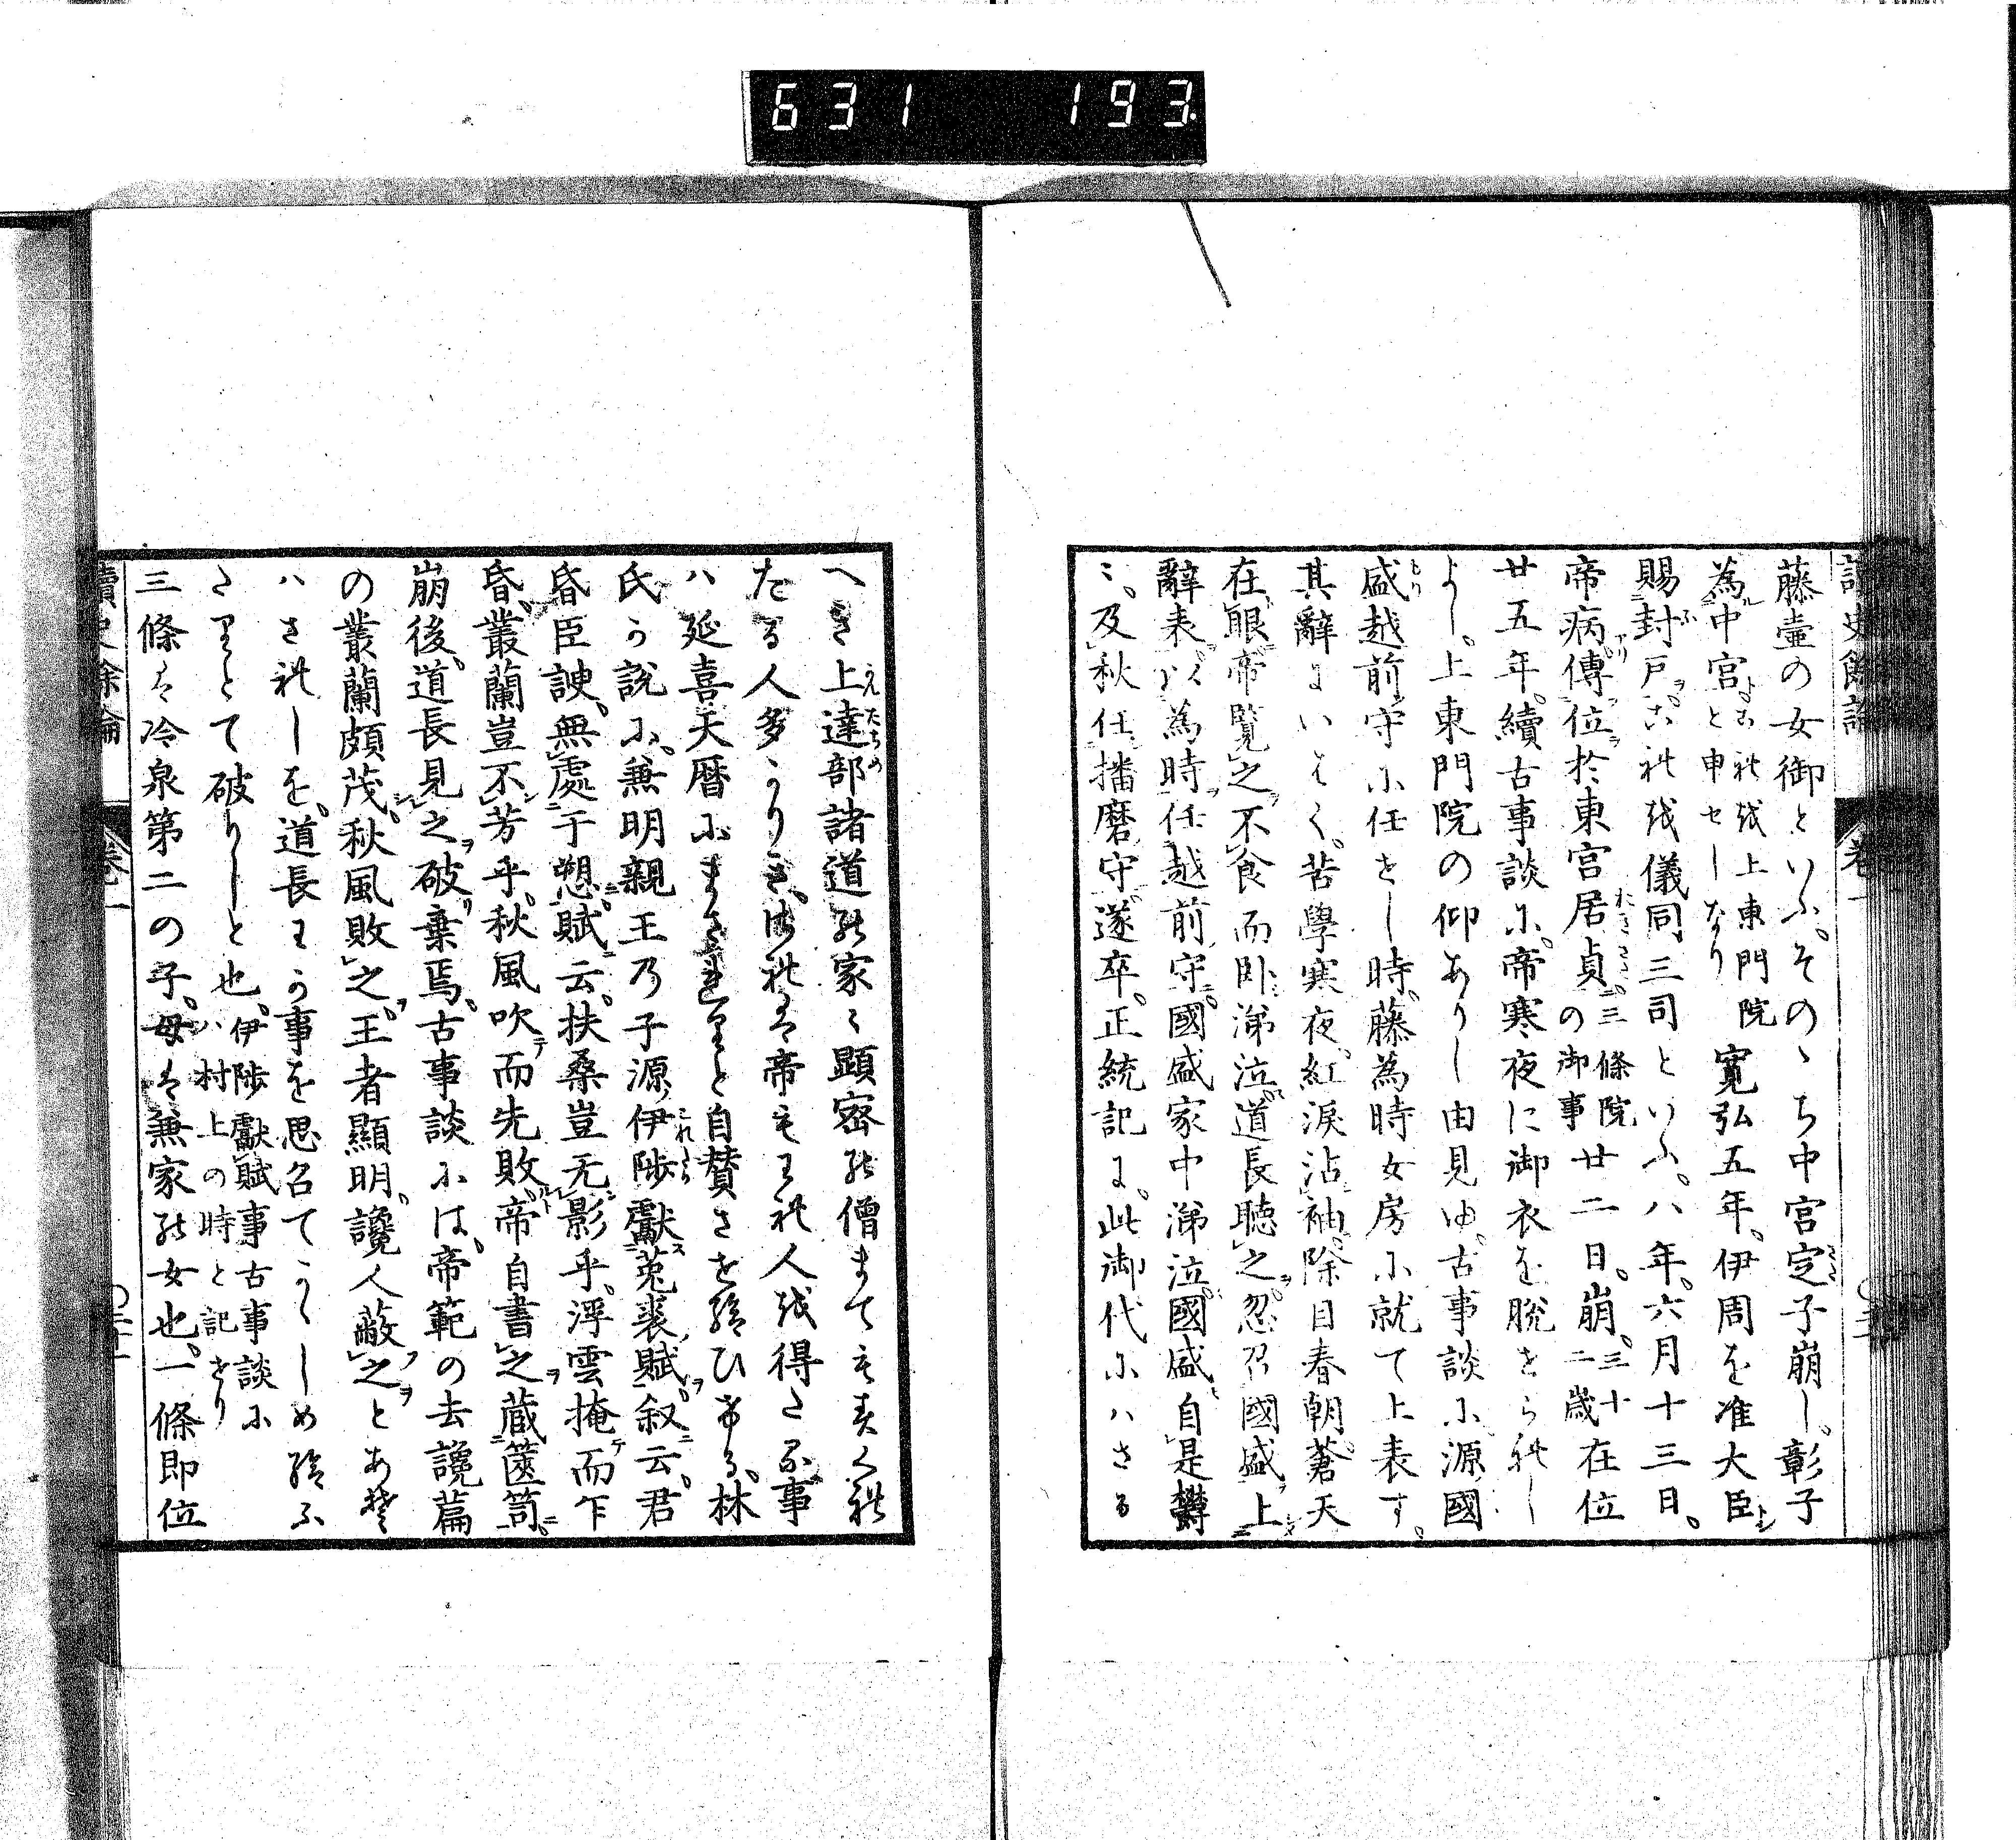 631 193
讀史餘論 卷一
藤壺の女御といふ。そのゝち中宮定子崩し。彰子
為中宮とこれ越上東門院と申セしなり 寛弘五年。伊周を准大臣
賜封戸。これ越儀同三司といふ。八年。六月十三日。
帝病。傳位於東宮居貞。三條院の御事 廿二日。崩。三十二歳 在位
廿五年。續古事談ふ。帝寒夜に御衣を脱きられし
よし。上東門院の仰ありし由見ゆ。古事談ふ。源國
盛越前守ふ任せし時。藤為時女房ふ就て上表す。
其辭にいはく。苦學寒夜。紅涙沾袖。除目春朝。蒼天
在眼。帝覧之。不食而卧涕泣。道長聴之。忽召國盛。上
辭表。以為時任越前守。國盛家中涕泣。國盛自是欝
〻。及秋任播磨守。遂卒。正統記に。此御代ふハさる
へき上達部諸道の家〻顯密の僧まてもすくれ
たる人多かりき。されは帝もわれ人越得たる事
ハ延喜天暦ふまされりと自賛させ給ひける。林
氏か説ふ。兼明親王乃子源伊陟獻菟裘賦。叙云。君
昏臣諛。無處于愬。賦云。扶桑豈无影乎。浮雲掩而乍
昏。叢蘭豈不芳乎。秋風吹而先敗。帝自書之。蔵篋笥。
崩後。道長見之。破棄焉。古事談ふは。帝範の去讒篇
の叢蘭頗茂。秋風敗之。王者顯明。讒人蔽之とあそ
ハされしを。道長わか事を思召てかくしめ給ふ
さりとて破りしと也。伊陟獻賦事古事談ふハ村上の時と記せり
三條は冷泉第二の子。母は兼家の女也。一條即位
讀史餘論 卷一